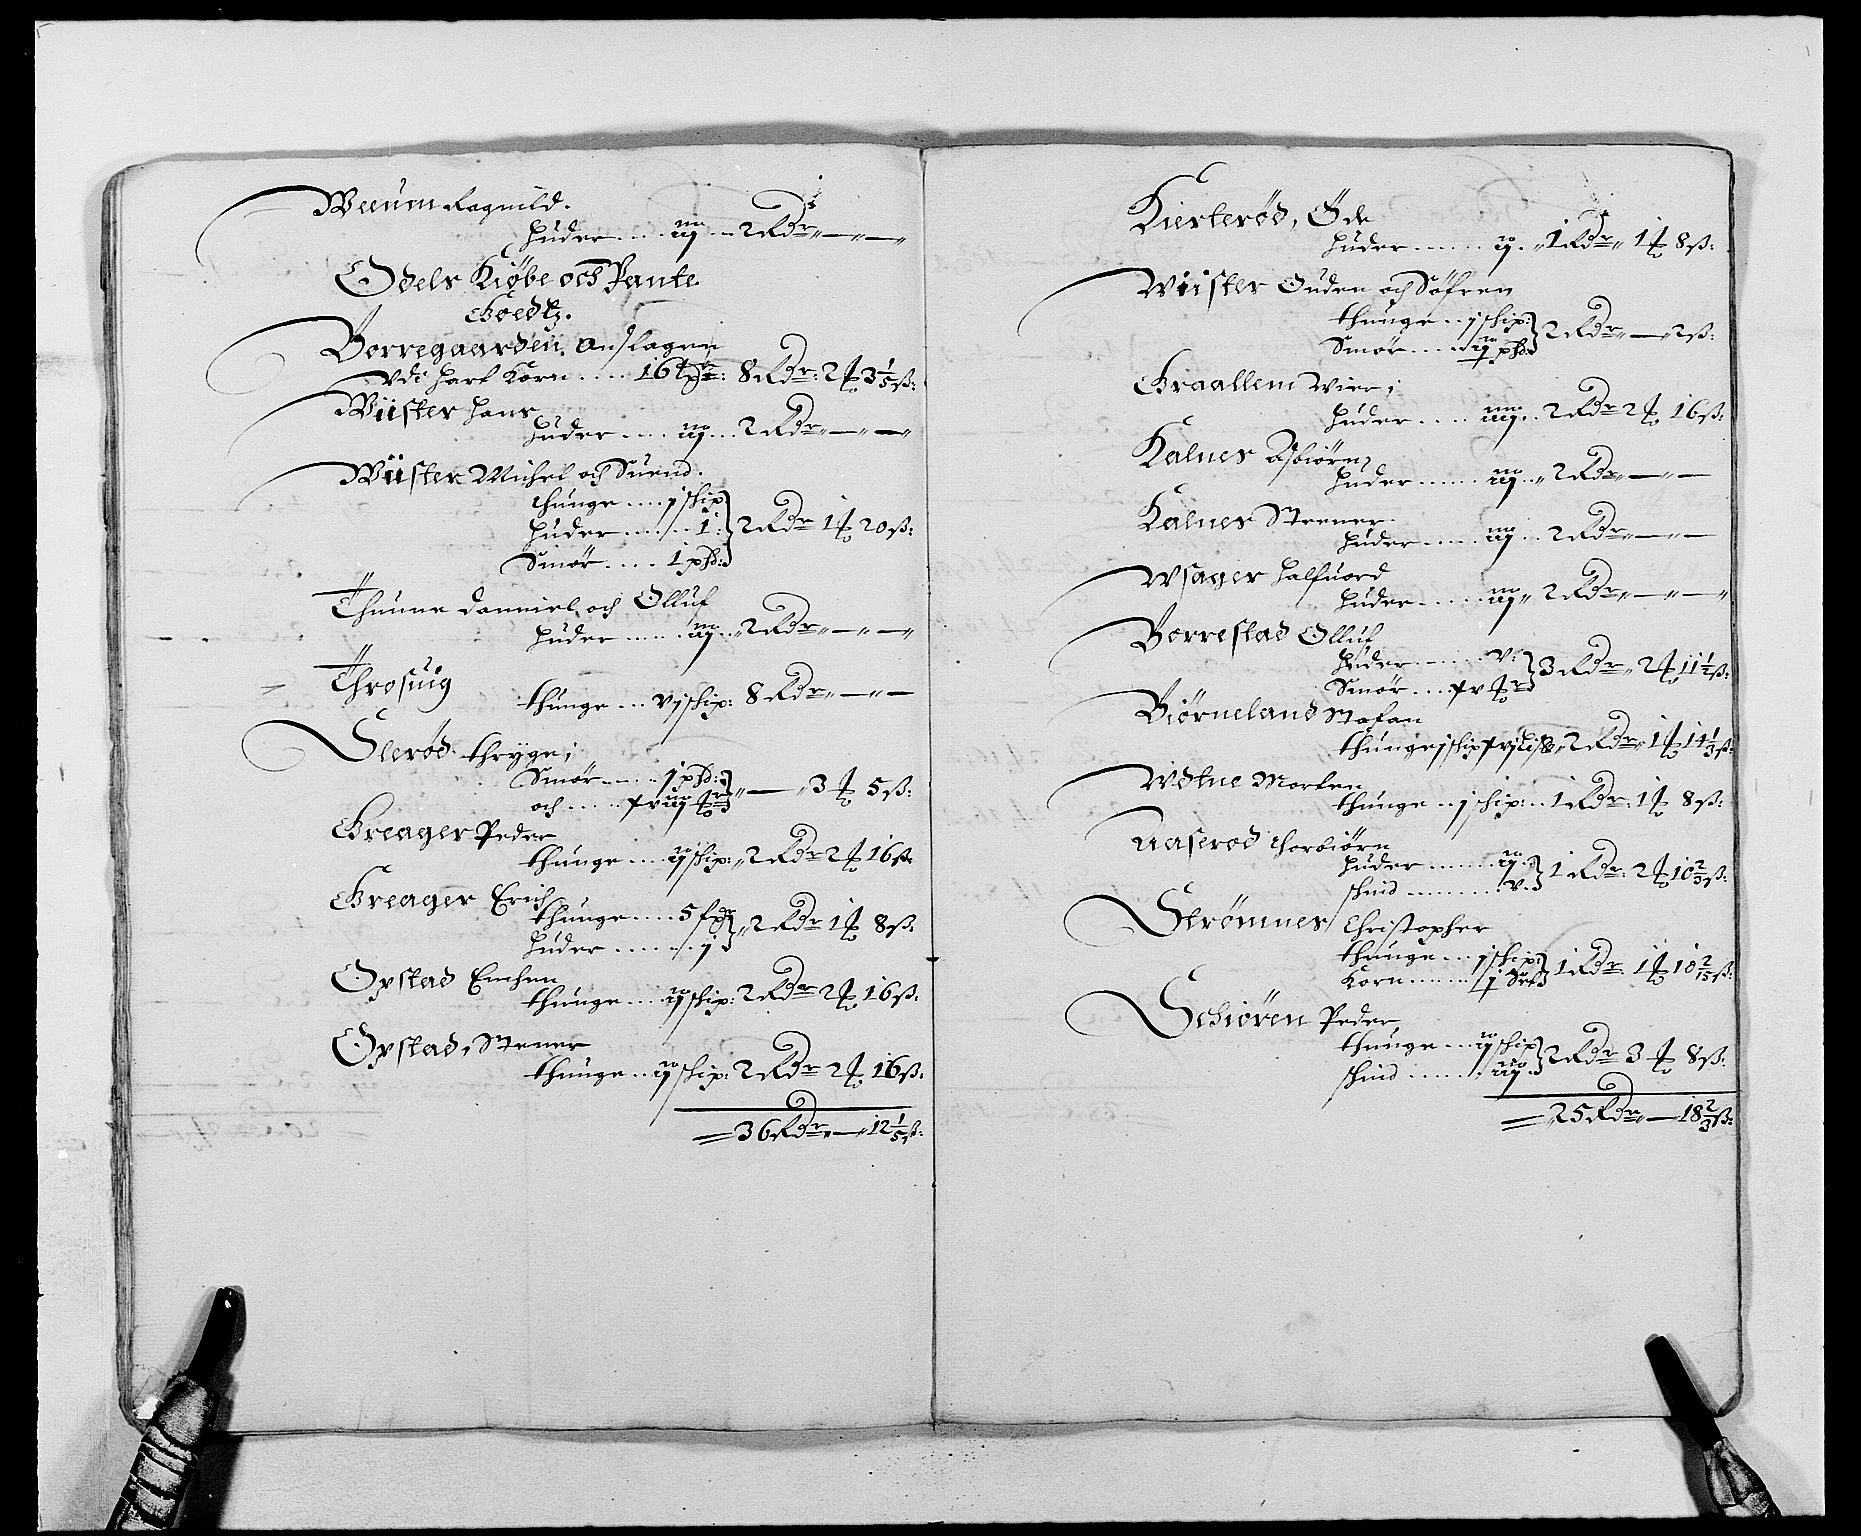 Weeum Ragnild.
huder .... iij ... 2 Rdr — —
Odels Kiøbe och Pante
Goedtz.
Borregaarden, Anslagen
Vdi hart Korn .... 16 tdr: 8 Rdr: 2 ₰ 3 1/5 ß:
Wiister Hans
huder .... iij ... 2 Rdr — —
Wiister Michel och Suend.
thunge .... j schip
huder ...... 1
Smør .... 1 phd: 2 Rdr 1 ₰ 20 ß:
Thunne Danniel och Olluf
huder ...... iij .. 2 Rdr — —
Throsuig
thunge ... vj schip: 8 Rdr — —
Slerød thryge;
Smør ..... j phd:
och ..... — 3 ₰ 5 ß:
Greager Peder
thunge .... ij schip: 2 Rdr 2 ₰ 16 ß:
Greager Erich
thunge .... 5 fdr
huder ....... j 2 Rdr 1 ₰ 8 ß:
Opstad Emben
thunge .... ij schip: 2 Rdr 2 ₰ 16 ß:
Opstad, Stener
thunge .. ij schip: 2 Rdr 2 ₰ 16 ß:
= 36 Rdr — 12 1/5 ß:
Kierterød, Öde
huder ...... ij .. 1 Rdr 1 ₰ 8 ß:
Wiister Guden och Søfren
thunge .. j schip:
Smør .... ij phd: 2 Rdr — 2 ß:
Graallem Wier;
huder .... iiij .. 2 Rdr 2 ₰ 16 ß:
Kalnes Asbiørn,
huder ...... iij .. 2 Rdr — —
Kalnes Steener.
huder ...... iij .. 2 Rdr — —
Wsager Halfuord
huder ...... iij 2 Rdr — —
Borrestad Olluf
huder ...... v:
Smør ... 3 Rdr 2 ₰ 11 1/2 ß:
Biørneland Stafan
thunge j schip 2 Rdr 1 ₰ 14 1/3 ß:
Wdtne Morten
thunge .. j schip: .. 1 Rdr: 1 ₰ 8 ß:
Aaserød Thorbiørn
huder ....... ij
schind ........ v. 1 Rdr: 2 ₰ 10 2/3 ß:
Strømnes Christopher
thunge ... j schip:
Korn ...... j 1 Rdr 1 ₰ 10 2/15 ß:
Schiøren Peder
thunge ... ij schip
schind ...... iij .. 2 Rdr 3 ₰ 8 ß:
= 25 Rdr — 18 2/3 ß: